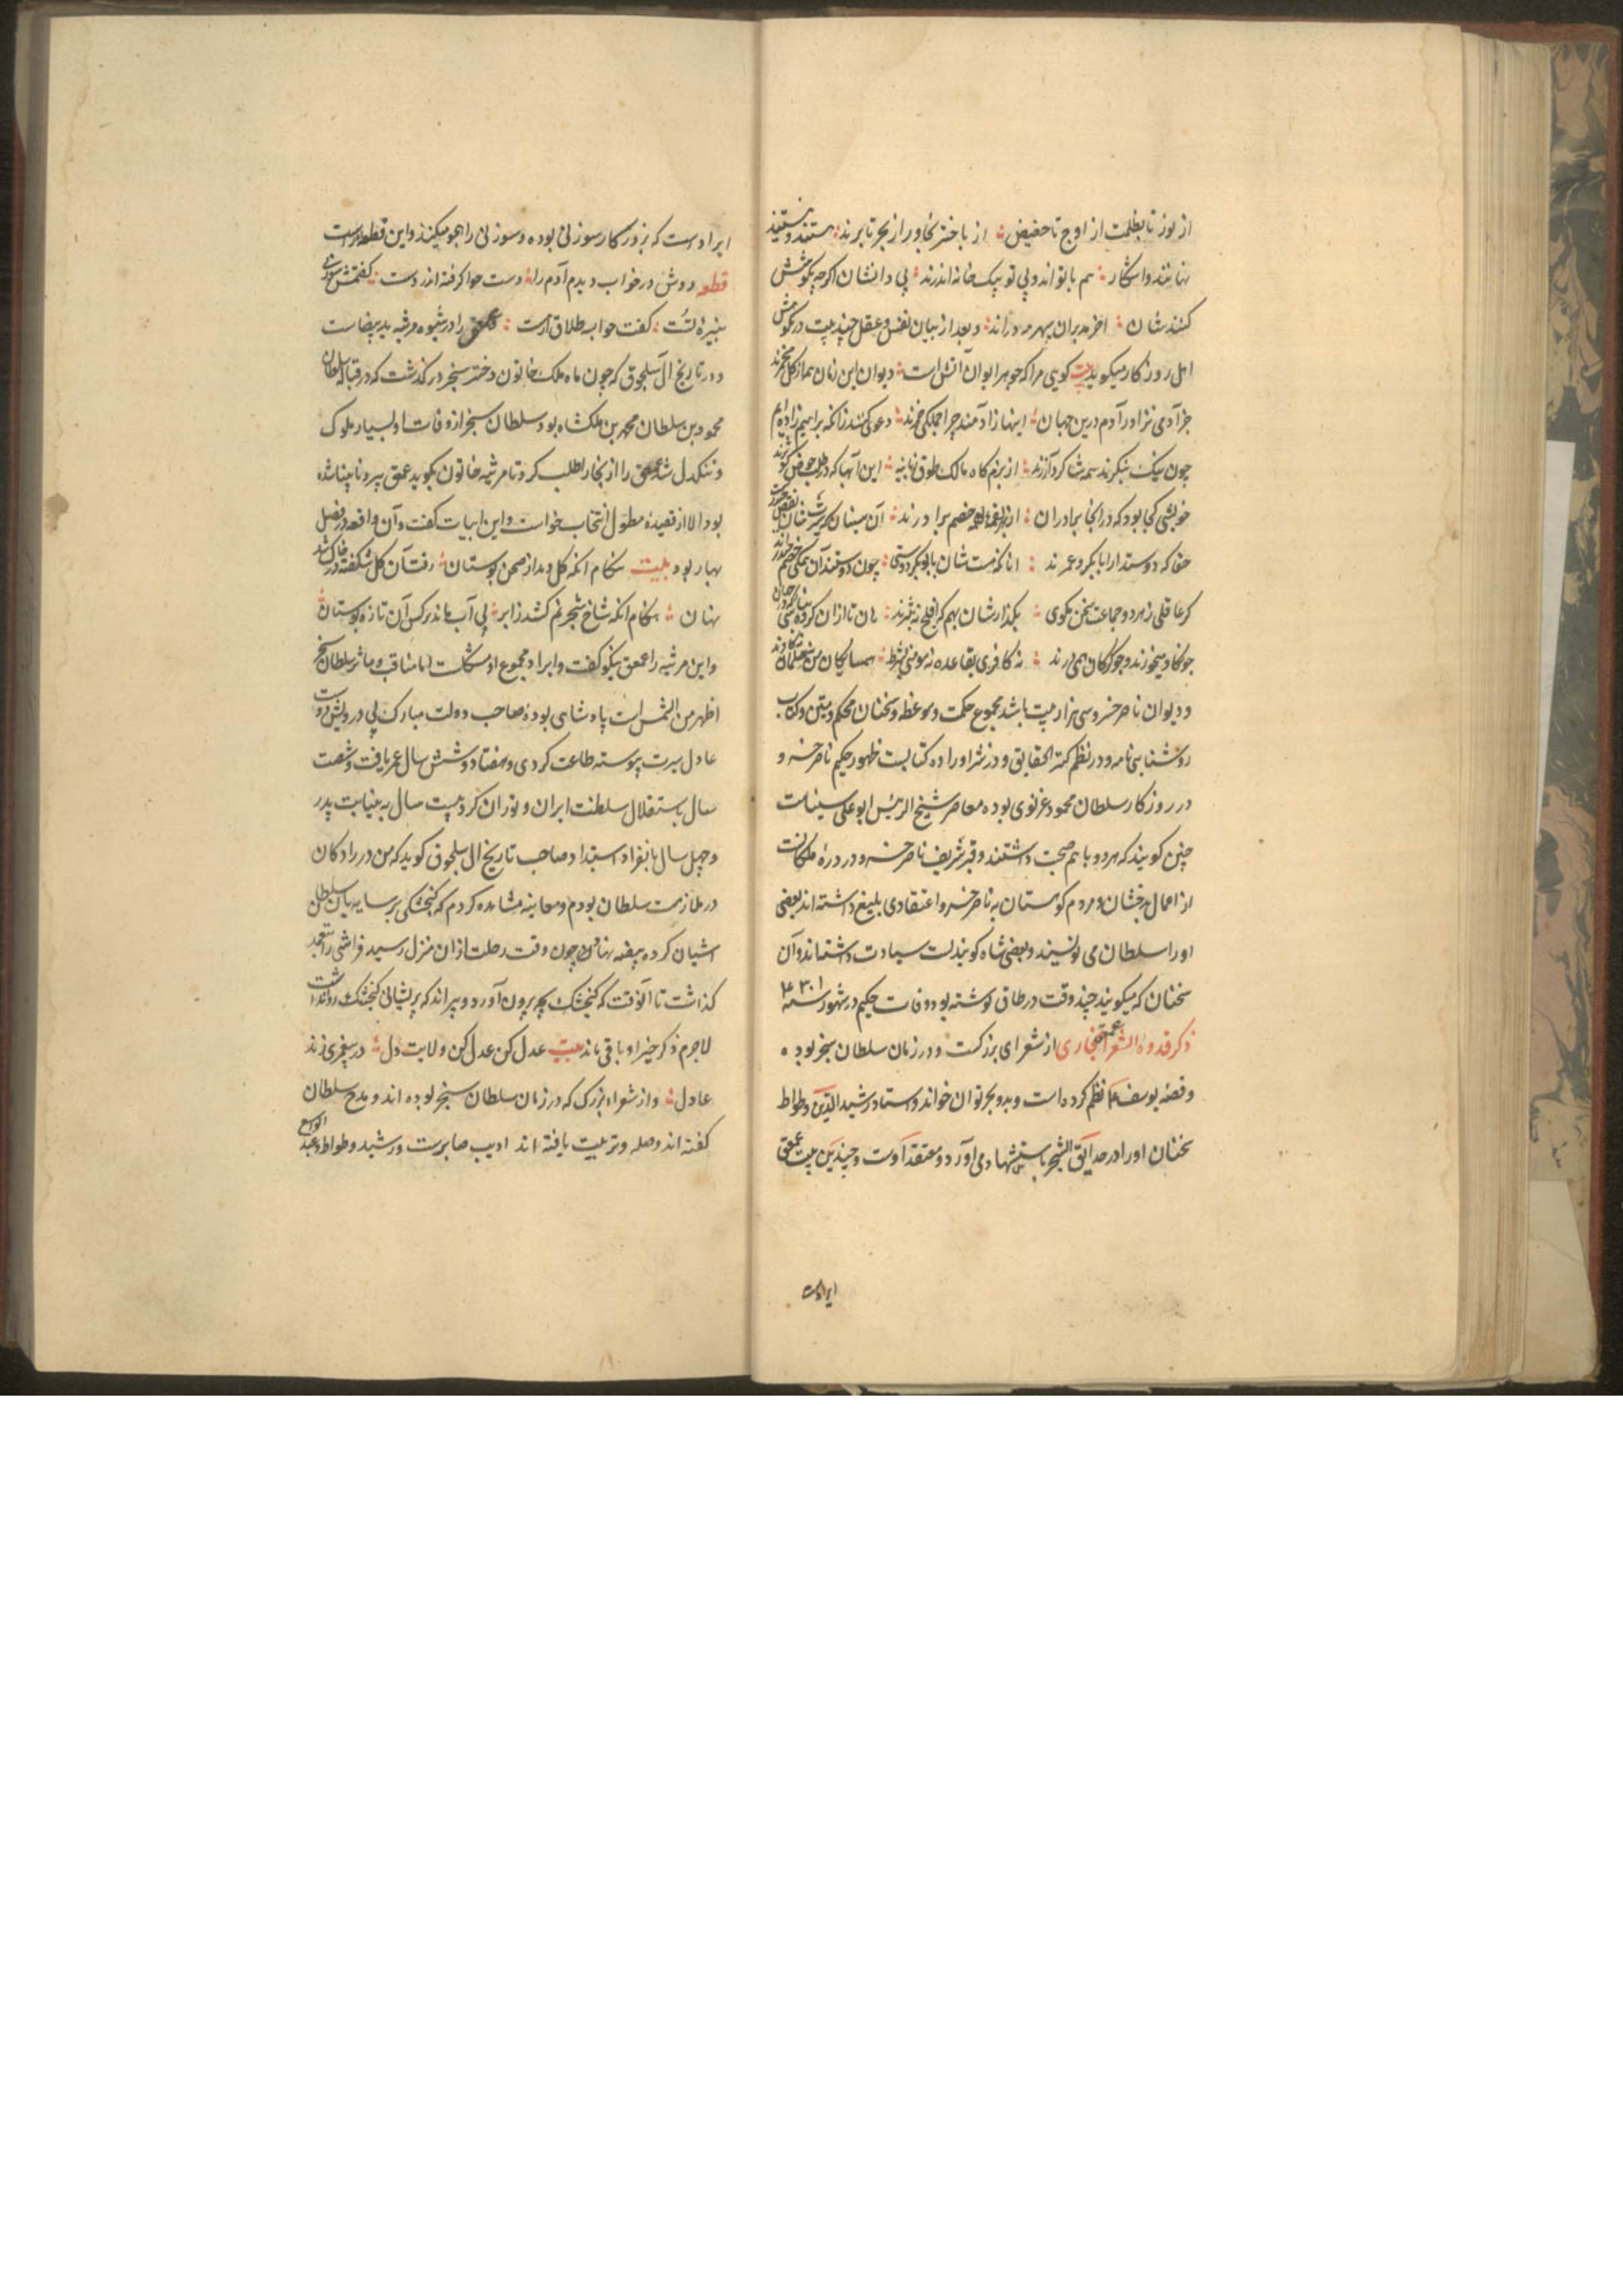 از نور تا بظلمت از اوج تا حضیض ؛ از باختر بخاور از بحر تا برند ؛ هستند و نیستند
نهانند و آشکار ؛ هم با تواند و بی تو بیک خانه اندرند ؛ بی دانشان اگرچه نکوهش
کنندشان ؛ آخر مدبران سپهر مدوراند ؛ و بعد از بیان نفس و عقل چند بیت در نکوهش
اهل روزگار میگوید بیت کویی مرا که جوهر دیوان ز آتش است ؛ دیوان این زمان همه از گل مخمرند
جز آدمی نزاد ز آدم درین جهان ؛ اینها ز آدمند چرا جملگی خرند ؛ دعوی کنند زانکه براهیم زاده ایم
چون نیک بنگرند همه شاکرد آزرند ؛ از بزم کاه مالک طوق زبانیه ؛ این ابلهان که در طلب حوض کوثرند
خویشی کجا بود که در آنجا برادران ؛ از بهر لقمه همه خصم برادرند ؛ آن سنیان که سیرتشان بغض حیدرست
حقا که دوستدار ابابکر و عمرند ؛ آنانکه هست شان بابوبکر دوستی ؛ چون دوستند آن همگی خصم حیدرند
کر عاقلی ز هر دو جماعت سخن مکوی ؛ بگذارشان بهم که نه افلح نه قنبرند ؛ هان تا ازان گروه نباشی که در جهان
چو کاو میخورند و چو کرکان همی درند ؛ نه کافری بقاعده نه مومنی بشرط ؛ همسایگان من نه مسلمان نه کافرند
و دیوان ناصر خسرو سی هزار بیت باشد مجموع حکمت و موعظه و سخنان محکم و متین و کتاب
روشنایی نامه و در نظم کنز الحقایق و در نثر او راده کتابیست ظهور حکیم ناصر خسرو
در روزگار سلطان محمود غزنوی بوده معاصر شیخ الرئیس ابو علی سیناست
چنین کویند که هر دو با هم صحبت داشتند و قبر شریف ناصر خسرو در دره یمکانست
از اعمال بدخشان و مردم کوهستان به ناصر خسرو اعتقادی بلیغ داشته اند بعضی
او را سلطان می نویسند و بعضی شاه کویند نسبت سیادت داشته اند و آن
سخنان که میگویند چند وقت در طاق کوشته بود وفات حکیم در شهور سنه ۴۳۱
ذکر قدوة الشعرا عمعق بخاری از شعرای بزرگست و در زمان سلطان سنجر بوده
و قصه یوسف ع م نظم کرده است و بدو بحر توان خواند و استاد رشید الدین وطواط
سخنان او را در حدائق السحر باستشهاد می آورد و معتقد اوست و چندین بیت عمعق
ایراد است
ایراد است که بزور کار سوزنی بوده و سوزنی را هجو میکند و این قطعه اوراست
قطعه دوش در خواب دیدم آدم را ؛ دست حوا گرفته اندر دست ؛ گفتمش سوزنی
نبیره تست ؛ گفت حوا بسه طلاق ار هست ؛ عمعق را در شیوه مرثیه ید بیضاست
و در تاریخ آل سلجوق که چون ماه ملک خاتون دختر سنجر درگذشت که در قباله سلطان
محمود بن سلطان محمد بن ملکشاه بود سلطان سنجر از وفات او بسیار ملوک
و تنگدل شد عمعق را از بخارا طلب کرد تا مرثیه خاتون بگوید عمعق پیر و نابینا شده
بود الا از قصیده مطول انتخاب خواست و این ابیات گفت و آن واقعه در فصل
بهار بود بیت هنگام آنکه گل دمد از صحن بوستان ؛ رفت آن گل شکفته و در خاک شد
نهان ؛ هنگام آنکه شاخ شجر نم کشد ز ابر ؛ بی آب ماند نرکس آن تازه بوستان ؛
و این مرثیه را عمعق نیکو گفت و ایراد مجموع او مشکلست اما مناقب و مآثر سلطان سنجر
اظهر من الشمس است پادشاهی بوده صاحب دولت مبارک پی درویش دوست
عادل سیرت پیوسته طاعت کردی و هفتاد و شش سال عمر یافت و شصت
سال باستقلال سلطنت ایران و توران کرد بیست سال به نیابت پدر
و چهل سال بانفراد استبداد صاحب تاریخ آل سلجوق کوید که من در رادکان
در ملازمت سلطان بودم و معاینه مشاهده کردم که گنجشکی بر سایه بان سلطان
اشیان کرده بیضه نهاد و چون وقت رحلت ازان منزل رسید فراشی را متعهد
گذاشت تا آنوقت که گنجشک بچه بیرون آورد و پراند که پریشانی گنجشک روا نداشت
لاجرم ذکر خیر او باقی ماند بیت عدل کن عدل کن ولایت دل ؛ در پیغمبری زند
عادل ؛ و از شعراء بزرگ که در زمان سلطان سنجر بوده اند و مدح سلطان
گفته اند و صله و تربیت یافته اند ادیب صابرست و رشید وطواط و عبد الواسع